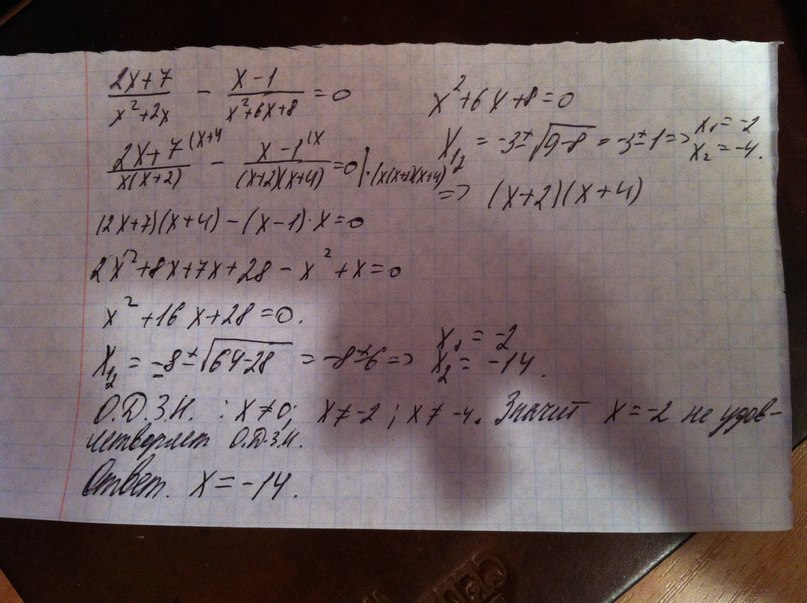 (2x+7)/(x²+2x) - (x-1)/(x²+6x+8) = 0
x²+6x+8=0
x₁,₂ = -3±√(9-8) = -3±1 => x₁ = -2 x₂ = -4.
=> (x+2)(x+4)
(2x+7)^(x+4/(x(x+2)) - (x-1)^(x/((x+2)(x+4)) = 0 | ·(x(x+2)(x+4)
(2x+7)(x+4) - (x-1)·x=0
2x²+8x+7x+28 - x²+x=0
x²+16x+28=0.
x₁,₂ = -8±√(64-28) = -8±6 => x₁ = -2 x₂ = -14.
О.Д.З.Н. : x≠0; x≠-2; x≠-4. Значит x=-2 не удов-
летворяет О.Д.З.Н.
Ответ. x=-14.